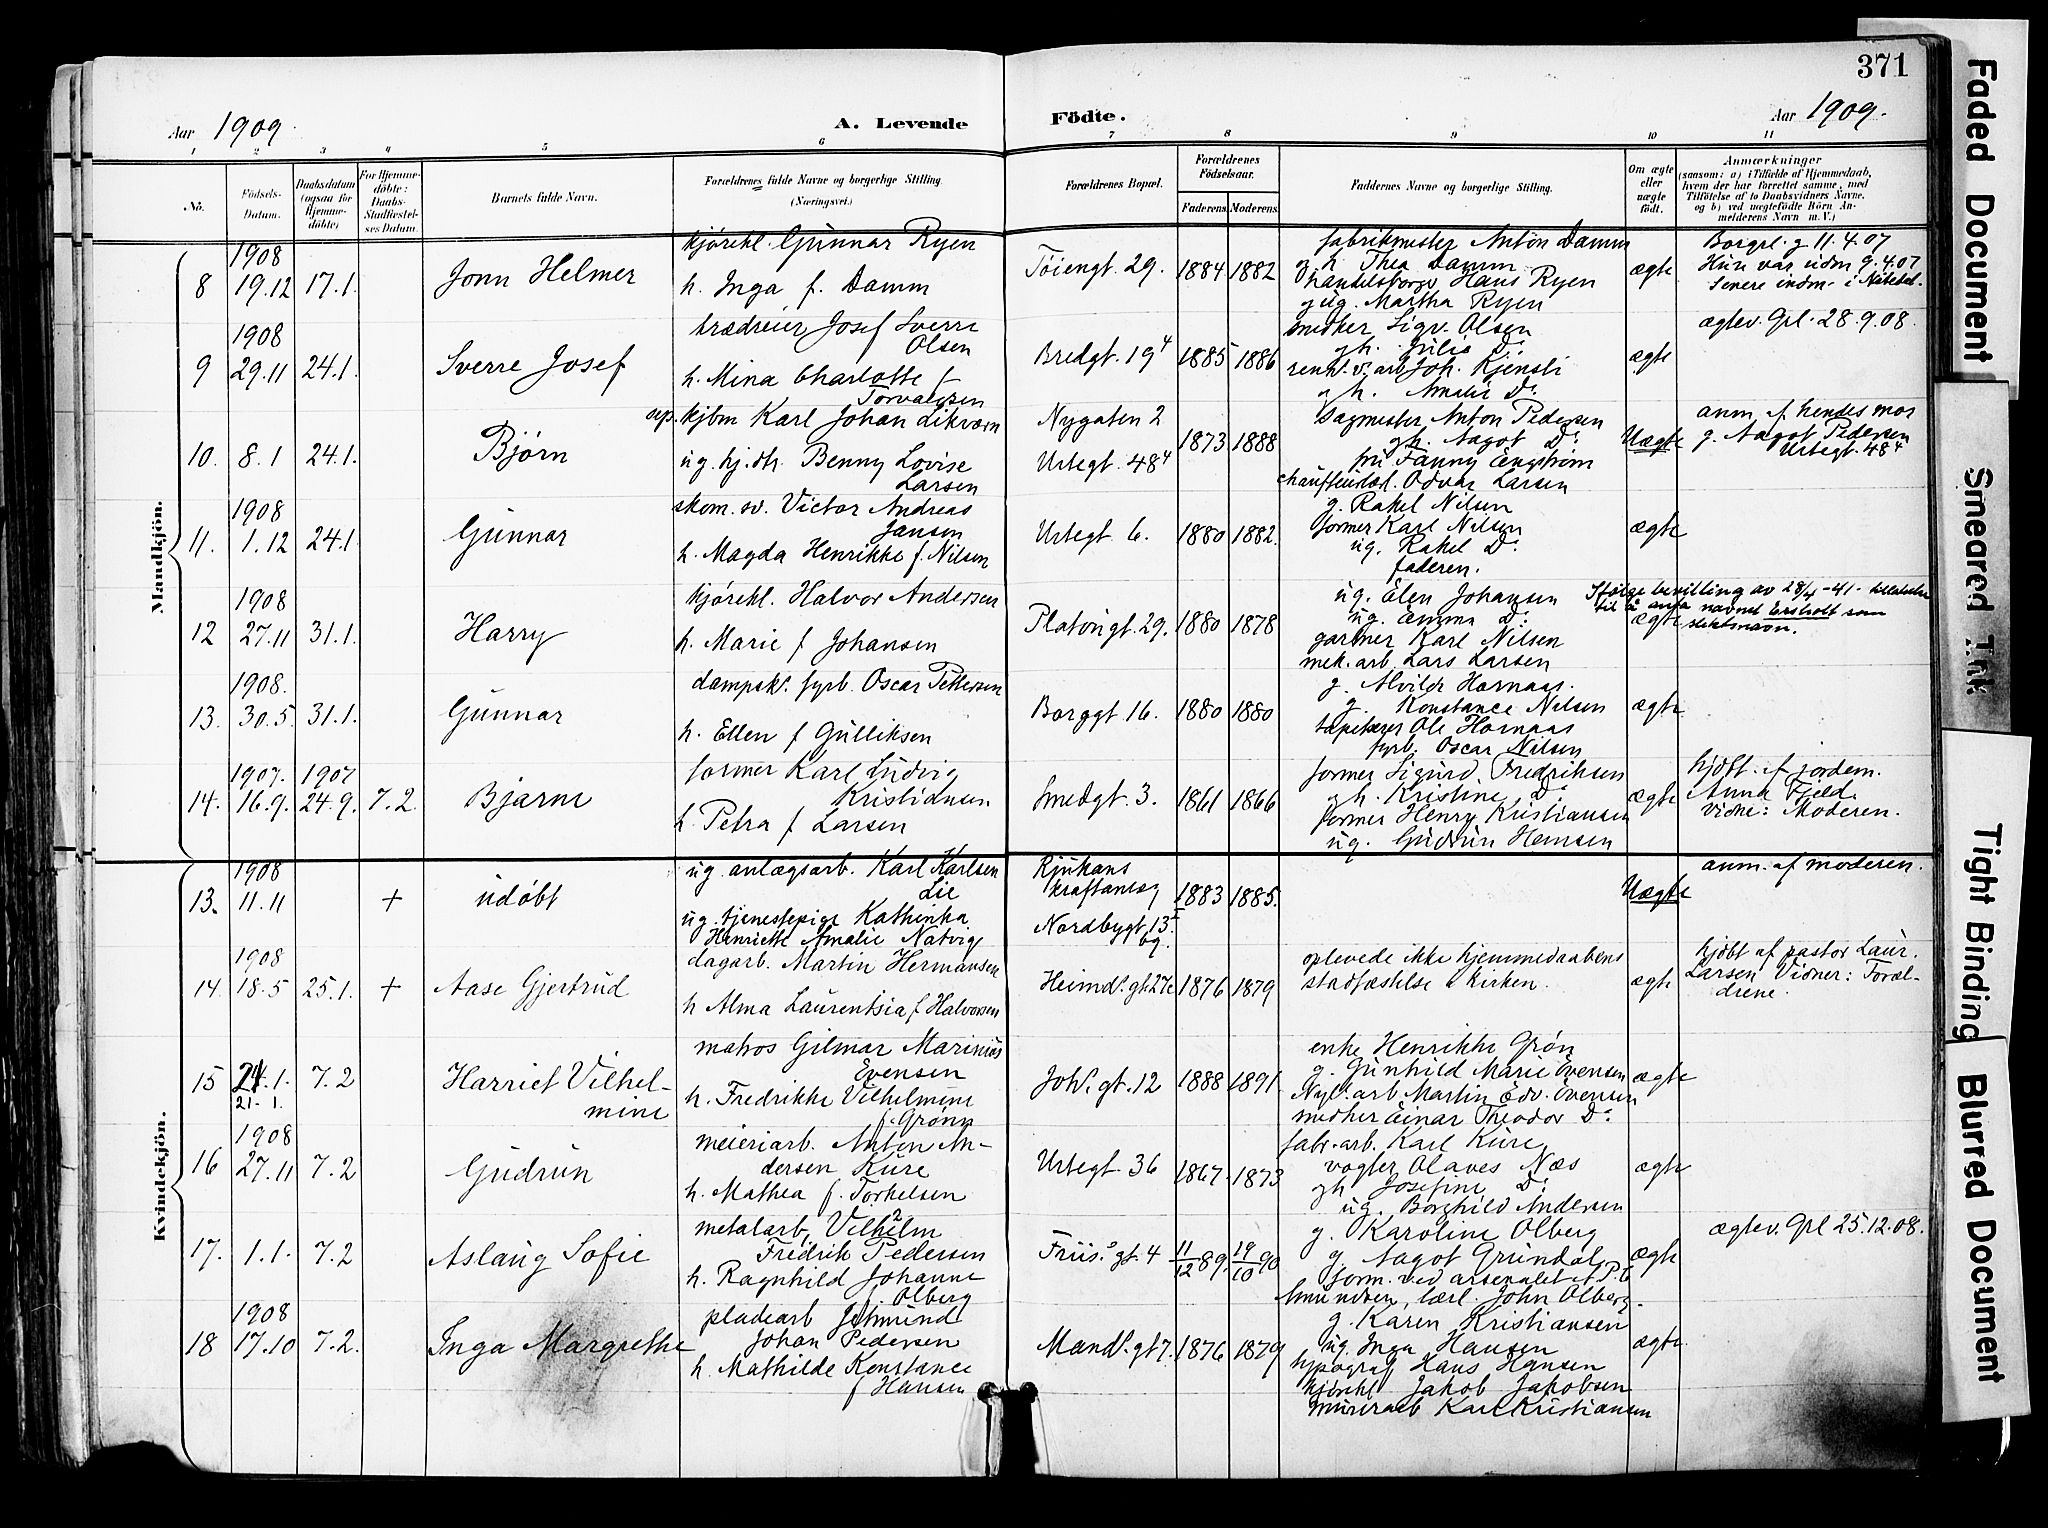 371
Aar 1909.
A. Levende Födte.
Aar 1909.
1 2 3 4 5 6 7 8 9 10 11
No.
Födsels-Datum.
Daabsdatum (ogsaa for Hjemmedöbte)
For Hjemmedöbte: Daabs-Stadfæstelses Datum.
Barnets fulde Navn.
Forældrenes fulde Navne og borgerlige Stilling.
(Næringsvei.)
Forældrenes Bopæl.
Forældrenes Födselsaar.
Faderens. Moderens.
Faddernes Navne og borgerlige Stilling.
Om ægte eller uægte födt.
Anmærkninger
(saasom: a) i Tilfælde af Hjemmedaab,
hvem der har forrettet samme, med
Tilföielse af to Daabsvidners Navne,
og b) ved uægtefödte Börn Anmelderens Navn m. V.)
Mandkjön.
8 1908 19.12 17.1. Jonn Helmer
kjørekl. Gunnar Ryen
h. Inga f. Damm
Töiengt. 29. 1884 1882
fabrikmester Anton Damm
g h. Thea Damm
handelsborger Hans Ryen
g ug. Martha Ryen
ægte
Borgrl. g 11.4.07
Hun var udm 9.4.07
Senere indm. i Nittedal.
9 1908 29.11 24.1. Sverre Josef
trædreier Josef Sverre
Olsen
h. Mina Charlotte f
Torvaldsen
Bredgt. 19⁴ 1885 1886
snedker Sigv. Olsen
g h. Julie Dº
renh.v.arb Joh. Kjensli
g h. Amalie Dº
ægte
ægtev. Gpl. 28.9.08.
10. 8.1 24.1. Bjørn
sep. kjbm Karl Johan Likværn
ug. hj.dtr. Benny Lovise
Larsen
Nygaten 2
Urtegt. 48⁴
1873 1888
Sagmester Anton Pedersen
g h. Aagot Dº
fru Fanny Engstrøm
chaufførlærl. Odvar Larsen
Uægte
anm. af hendes mor
g. Aagot Pedersen
Urtegt. 48⁴
11. 1908 1.12 24.1 Gunnar
skom. sv. Victor Andreas
Jansen
h. Magda Henrikke f. Nilsen
Urtegt. 6. 1880 1882.
g. Rakel Nilsen
former Karl Nilsen
ug. Rakel Dº
faderen.
ægte
12 1908 27.11 31.1. Harry
kjørekl. Halvor Andersen
h. Marie f Johansen
Platöugt. 29. 1880 1878
ug. Elen Johansen
ug. Emma Dº
gartner Karl Nilsen
mek. arb. Lars Larsen
ægte
Ifølge bevilling av 28/4 -41- tillatelse
til å anta navnet Ersholt som
slektsnavn.
13. 1908. 30.5 31.1. Gunnar
dampsk. fyrb. Oscar Pettersen
h. Ellen f Gulliksen
Borggt. 16. 1880 1880
g. Alvilde Hornaas.
g. Konstance Nilsen
tapetserer Ole Hornaas
fyrb. Oscar Nilsen
ægte
14. 1907. 16.9. 1907 24.9. 7.2. Bjarne
former Karl Ludvig
Kristiansen
h. Petra f Larsen
Smedgt. 3. 1861 1866
former Sigurd Fredriksen
g h. Kristine Dº
former Henry Kristiansen
ug. Gudrun Hansen
ægte
hjdbt. af jordem.
Anna Fjeld.
vidne: Moderen.
Kvindekjön.
13. 1908 11.11 + udøbt
ug. anlægsarb. Karl Karlsen
Lie
ug. tjenestepige Kathinka
Henriette Amalie Natvig
Rjukans
kraftanlæg
Nordbygt. 13 I
bg.
1883 1885.
Uægte
anm. af moderen.
14. 1908 18.5 25.1. + Aase Gjertrud
dagarb. Martin Hermansen
h Alma Laurentsia f Halvorsen
Heimd. gt. 27c 1876 1879
oplevede ikke hjemmedaabens
stadfæstelse i kirken.
ægte
hjdbt af pastor Laur.
Larsen Vidner: Foræl-
drene.
15 21.1. 21.1. 7.2 Harriet Vilhel-
mine
matros Gilmar Marinius
Evensen
h. Fredrikke Vilhelmine
f. Grönn
Joh. gt. 12 1888 1891.
enke Henrikke Grön
g. Gunhild Marie Evensen
Nyl. arb Martin Edv. Evensen
snedker Einar Theodor Dº
ægte
16 1908 27.11 7.2 Gudrun
meieriarb. Anton An-
dersen Kure
h. Mathea f. Torkelsen
Urtegt. 36 1867. 1873
fabr. arb. Karl Kure
vogter Olaves Næs
g h. Josefine Dº
ug. Borghild Andersen
ægte
17. 1.1. 7.2 Aslaug Sofie
metalarb. Vilhelm
Fredrik Pedersen
h. Ragnhild Johanne
f. Olberg
Friis.s gt. 4 11/12 89. 19/10 90
g. Karoline Olberg
g. Aagot Grundal
form. ved arsenalet P.
Amundsen, lærl. John Olberg.
ægte
ægtev. Gpl 25.12.08.
18 1908 17.10 7.2. Inga Margrethe
pladearb Jetmund
Johan Pedersen
h. Mathilde Konstance
f Hansen
Mand. gt 7. 1876 1879
g. Karen Kristiansen
ug. Inga Hansen
typograf Hans Hansen
kjörekl Jakob Jakobsen
murerarb Karl Kristiansen
ægte
Faded Document
Smeared Ink
Tight Binding
Blurred Document